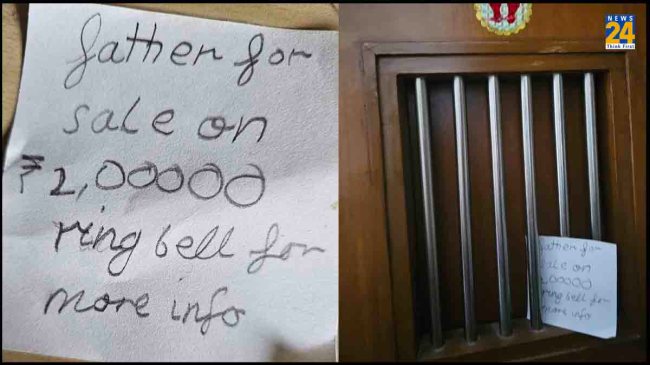 father for
sale on
₹2,00000
ring bell for
more info
NEWS
24
Think First
father for
sale on
2,00000
ring bell for
more info